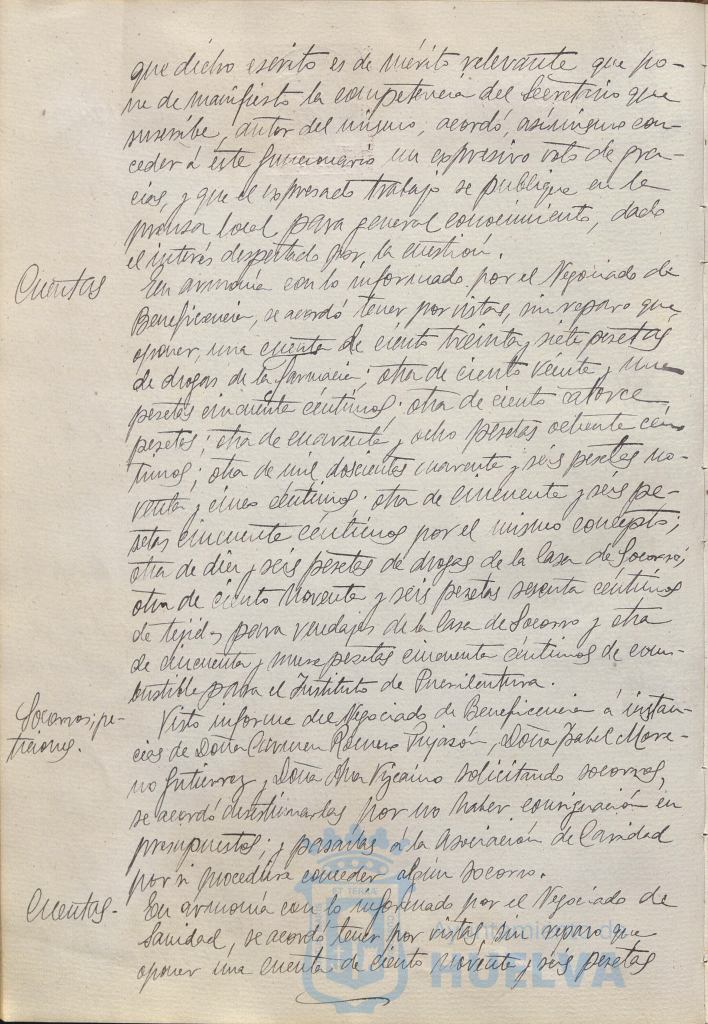 que dicho escrito es de mérito relevante que po-
ne de manifiesto la competencia del Secretario que
suscribe, autor del mismo, acordó, asimismo con-
ceder á este funcionario un expresivo voto de gra-
cias, y que el expresado trabajo se publique en la
prensa local para general conocimiento, dado
el interés despertado por la cuestión.
Cuentas
En armonía con lo informado por el Negociado de
Beneficencia, se acordó tener por vistas, sin reparo que
oponer, una cuenta de ciento treinta y siete pesetas
de drogas de la farmacia; otra de ciento veinte y una
pesetas cincuenta céntimos; otra de ciento catorce
pesetas; otra de cuarenta y ocho pesetas ochenta cén-
timos; otra de mil doscientas cuarenta y seis pesetas no-
venta y cinco céntimos; otra de cincuenta y seis pe-
setas cincuenta céntimos por el mismo concepto;
otra de diez y seis pesetas de drogas de la Casa de Socorro;
otra de ciento noventa y seis pesetas setenta céntimos
de tejidos para vendajes de la Casa de Socorro y otra
de cincuenta y nueve pesetas cincuenta céntimos de com-
bustible para el Instituto de Puericultura.
Socorros; pe-
ticiones.
Visto informe del Negociado de Beneficencia á instan-
cias de Doña Carmen Romero, Doña Isabel More-
no Gutierrez y Doña Ana Vizcaino solicitando socorros,
se acordó desestimarlas por no haber consignación en
presupuestos; y pasarlas á la Asociación de Caridad
por si procediera conceder algún socorro.
Cuentas.-
En armonía con lo informado por el Negociado de
Sanidad, se acordó tener por vistas, sin reparo que
oponer una cuenta de ciento noventa y seis pesetas
Ayuntamiento de
HUELVA